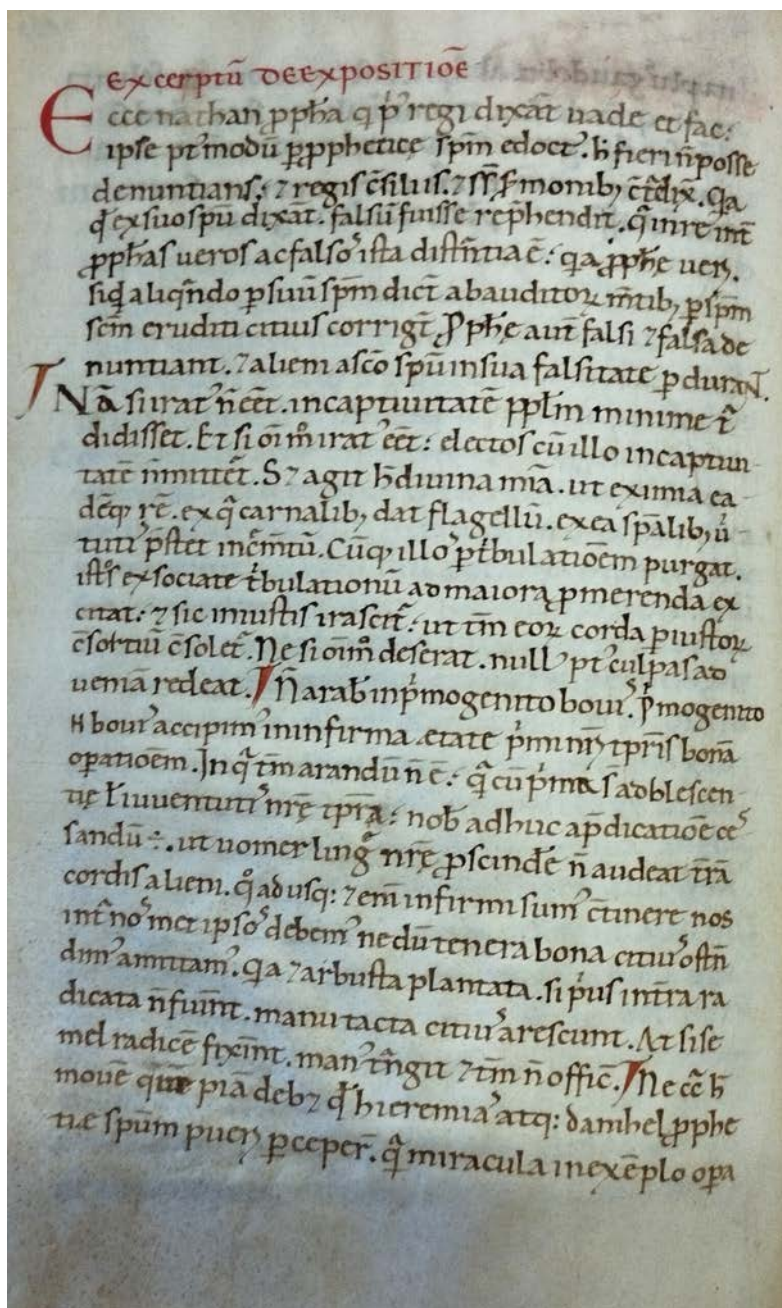 Excerptū DE EXPOSITIOE̅
Ecce nathan ꝓph̄a q̇ pꝰ regi dixat̄ uade et fac:
ipse ptꝰ modū ꝑ ꝓpphetice sp̄m edoctꝰ. h̄ fieri n̄ posse
denuntians: ⁊ regis c̄siliis. ⁊ ss̄ s̄monibꝫ c̄t̄dix̄. Qa
q̄ ex suo sp̄u dixat̄. falsū fuisse rep̄hendit. q̄ in re int̄
ꝓph̄as ueros ac falsoꝰ ista distn̄tia ē: qa ꝓph̄e ueri.
siqd̄ aliqn̄do ꝑ suū sp̄m dict̄ ab auditoꝝ m̄tibꝫ ꝑ sp̄m
sc̄m eruditi citius corrigt̄. Ꝓph̄e aut̄ falsi ⁊ falsa de
nuntiant. ⁊ alieni a sc̄o sp̄u in sua falsitate ꝑdurant̄.
Nā si iratꝰ n̄ eēt. in captiuitatē ppl̄m minime t̄
didisset. Et si oi̅m̊ iratꝰ eēt: electos cū illo in captiui
tatē n̄ mittet̄. S⁊ agit h̄ diuina mīa. ut ex una ea
dēqꝫ rē. ex q̄ carnalibꝫ dat flagellū. ex ea sp̄alibꝫ uͥ
tutiꝰ p̄stet inc̄m̄tū. Cūqꝫ illoꝰ ꝑ t̄bulatioēm purgat.
istoꝰ ex sociate t̄bulationū ad maiora ꝓmerenda ex
citat: ⁊ sic iniustis irascit̄: ut tm̄ eoꝝ corda ꝑ iustoꝝ
c̄sortiū c̄solet̄. Ne si oi̅m̊ deserat. nullꝰ ptꝰ culpas ad
ueniā redeat. N̄ arab̄ in pͥmogenito bouiꝰ. pͥmogenito
N bouiꝰ accipimꝰ in infirma etate pͥmi nr̄i tꝑis bonā
oꝑatioēm. In q̄ tm̄ arandū n̄ ē: q̄ cū pͥma s̄ adolescen
tię l̄ iuuentutiꝰ nr̄ę tꝑa: nob̄ adhuc a p̄dicatioe ceſ
sandū ÷. ut uomer lingꝰ nr̄ę ꝓscinde̅ n̄ audeat tr̄ā
cordis alieni. q̊adusq: ⁊enī infirmi sumꝰ c̄tinere nos
int̄ noꝰmet ipsoꝰ debemꝰ ne dū tenera bona citiuꝰ ostn̄
dimꝰ amittamꝰ. Qa ⁊ arbusta plantata. si pͥus in tr̄a ra
dicata n̄ fuint̄. manu tacta citiuꝰ arescunt. At si se
mel radicē fixint̄. manꝰ t̄ngit ⁊ tm̄ n̄ offic̄. Nec c̄ h̄
mouē que piā deb⁊ q̄ hieremiaꝰ atq: danihel ꝓphe
tię sp̄um pueri ꝑceper̄. q̄ miracula in exēplo oꝑa